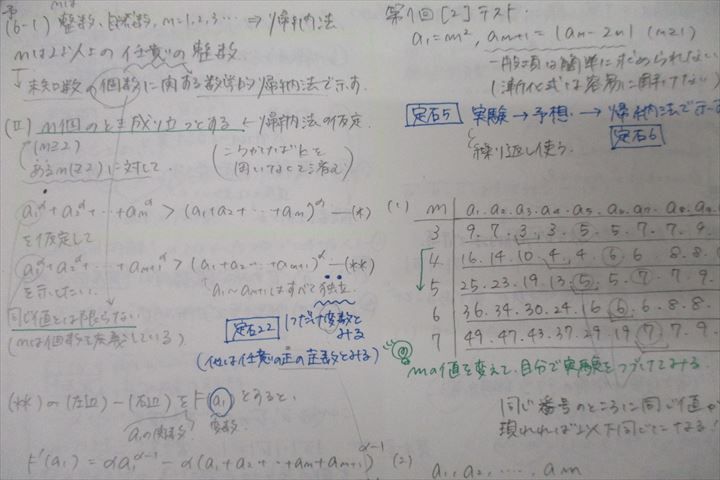 (6-1) 整数、自然数、m=1,2,3… ⇒ 帰納法
mは2以上の任意の整数
→ 未知数の個数に関する数学的帰納法で示す
(Ⅱ) m個のとき成り立つとする ← 帰納法の仮定
(m≧2)
あるm(≧2)に対して
(こうかけばkを
用いなくて済む)
a₁^α + a₂^α + … + am^α > (a₁+a₂+ … +am)^α —(*)
を仮定して
a₁^α + a₂^α + … + am+1^α > (a₁+a₂ … +am+1)^α —(**)
を示したい。
a₁~am+1はすべて独立
同じ値とは限らない
(mは個数を定義している)
定石22 1つだけ変数とみる
(他は任意の正の定数とみる)
(**)の(左辺)-(右辺)をF(a₁)とすると、
a₁の関数 変数
F'(a₁) = αa₁^α-1 - α(a₁+a₂+ … +am+am+1)^α-1
第1回[2]テスト
a₁=m², an+1=|an-2n| (n≧1)
一般項は簡単に求められない
(漸化式は容易に解けない)
定石5 実験→予想→帰納法で示す
定石6
繰り返し使う
(1) m a₁ a₂ a₃ a₄ a₅ a₆ a₇ a₈ a₉
3 9. 7. 3. 3. 5. 5. 7. 7. 9.
4. 16. 14. 10. 4. 4. 6 6 8. 8.
5 25. 23. 19. 13. 5. 5. 7 7. 9.
6 36. 34. 30. 24. 16 6. 6. 8. 8.
7 49. 47. 43. 37. 29. 19 7 7. 9.
mの値を変えて、自分で実験をつづけてみる
同じ番号のところに同じ値が
現れれば以下同じになる!
(2) a₁, a₂, ……, am